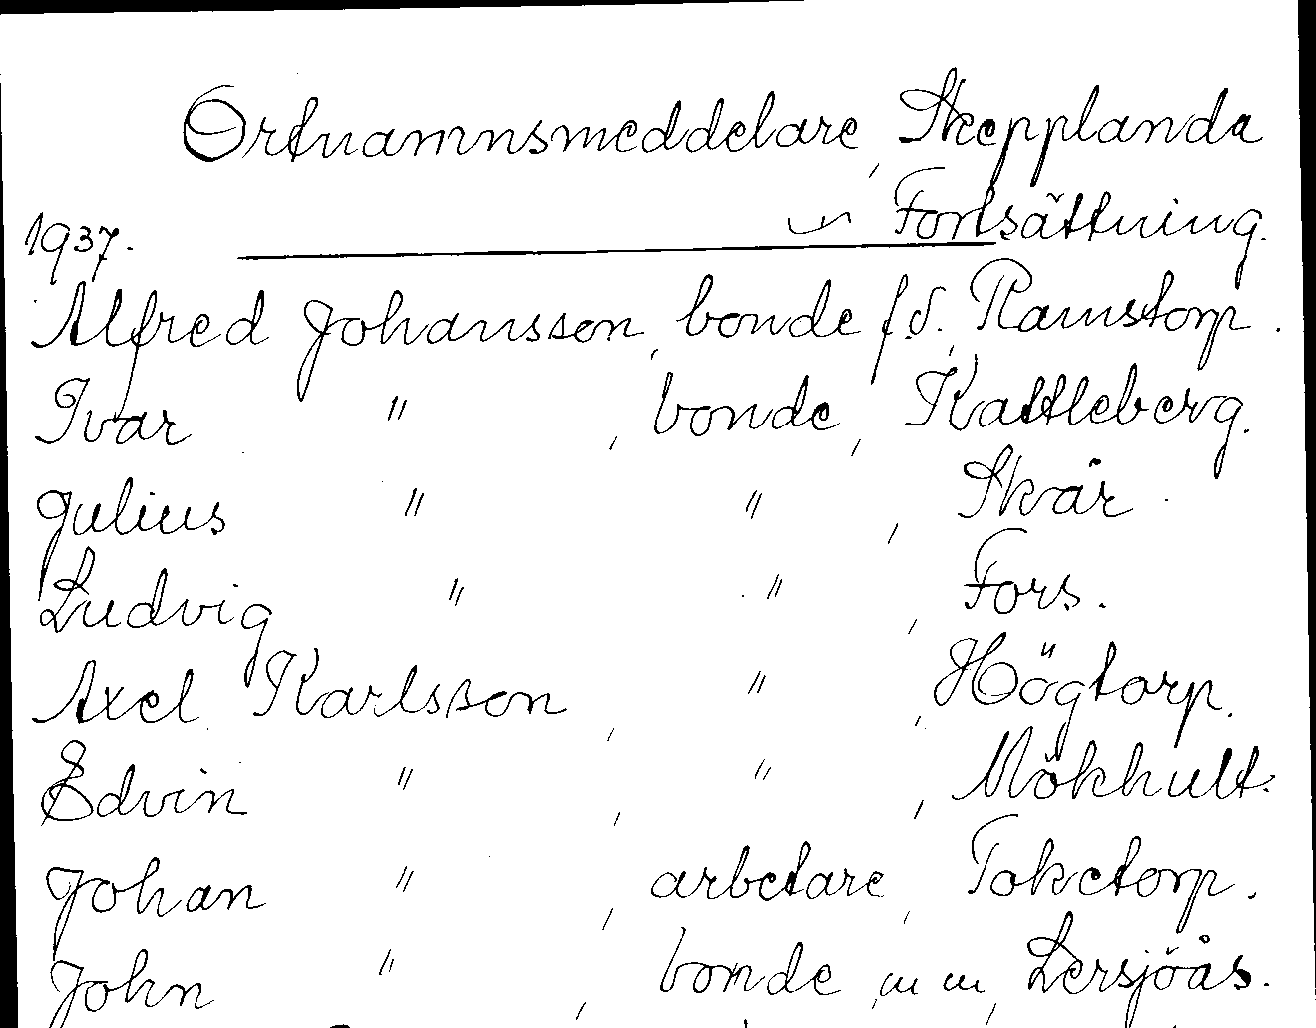 Ortnamnsmeddelare, Skepplanda
Fortsättning.
1937.
Alfred Johansson, bonde f.d., Ramstorp.
Ivar " , bonde, Kattleberg.
Julius " " , Skår
Ludvig " " , Fors.
Axel Karlsson, " , Högtorp.
Edvin " , " , Mökhult.
Johan " , arbetare, Toketorp.
John " , bonde, m m, Lersjöås.